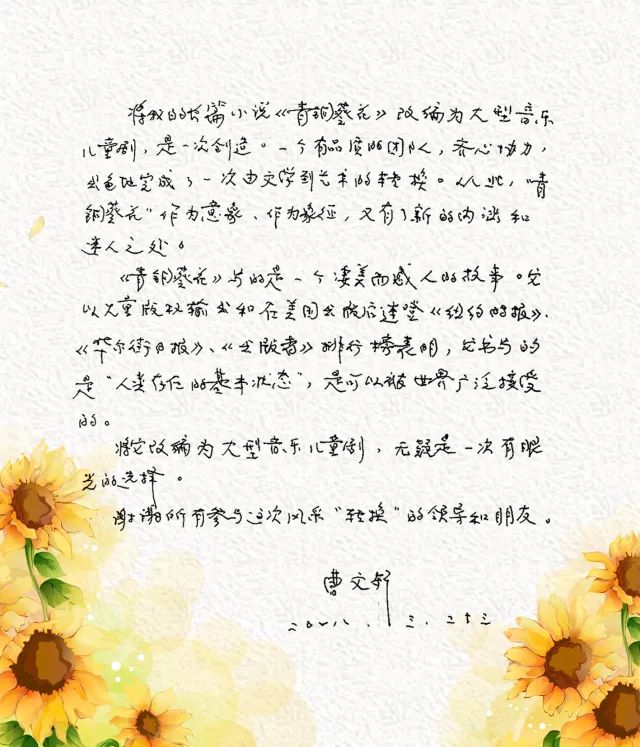 将我的长篇小说《青铜葵花》改编为大型音乐
儿童剧，是一次创造。一个有品质的团队，齐心协力，
出色地完成了一次由文学到艺术的转换。从此，“青
铜葵花”作为意象、作为象征，又有了新的内涵和
迷人之处。
《青铜葵花》写的是一个凄美而感人的故事。它
以大量版权输出和在美国出版后连登《纽约时报》、
《华尔街日报》、《出版者》排行榜表明，此书写的
是“人类存在的基本状态”，是可以被世界广泛接受
的。
将它改编为大型音乐儿童剧，无疑是一次有眼
光的选择。
谢谢所有参与这次风采“转换”的领导和朋友。
曹文轩
二〇一八．三．二十三